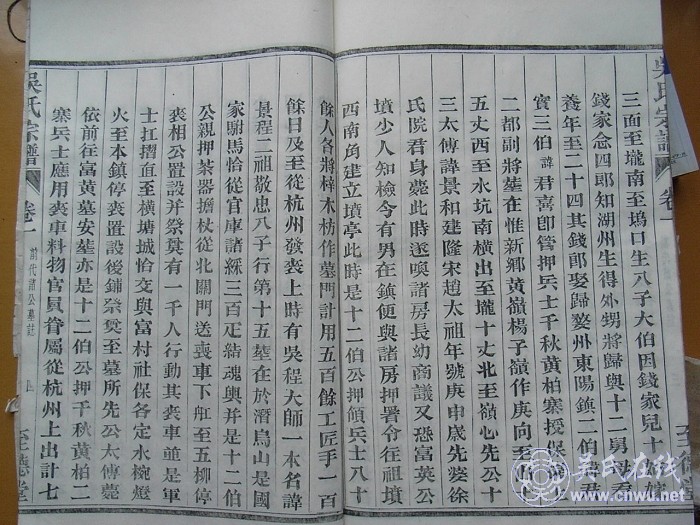 三面至壠南至塢口生八子大伯因錢家兒十娘嫁
錢家念四郎知湖州生得外甥將歸與十二舅
養年至二十四其錢郞娶歸婺州東陽鎮二伯
實三伯諱君喜卽管押兵士千秋黃柏寨授保
二都副將塟在惟新鄉黃嶺楊子嶺作庚向至
五丈五丈至水坑南橫出至壠十丈北至嶺心先公十
三太傅諱景和建隆宋趙太祖年號庚申歲先婆徐
氏院君身薨此時遂喚諸房長幼商議又恐富英公
墳少人知檢令有男在鎮便與諸房押署令往祖墳
西南角建立墳亭此時是十二伯公押領兵士八十
餘人各將樟木枋作墓門計用五百餘工匠手一百
餘日及至從杭州發喪上時有吳程大師一本名諱
景程二祖敬忠八子行第十五塟在於潛鳥山是國
家駙馬恰從官庫諸綵三百疋結魂輿并是十二伯
公親押茶器擔杖從北關門送喪車下缸至五柳停
喪相公置設并祭奠有一千人行動其喪車並是軍
士扛擡直至橫塘城恰交與富村社保各定水椀燈
火至本鎮停喪置設後鋪祭奠至墓所先公太傅薨
依前往富黃墓安塟亦是十二伯公押千秋黃柏二
寨兵士應用喪車料物官員眷屬從杭州上出計七
吳氏宗譜
卷一
前代諸公墓誌
四
至德堂
吳氏宗譜
卷一
至德堂
吴氏在线
www.cnwu.net